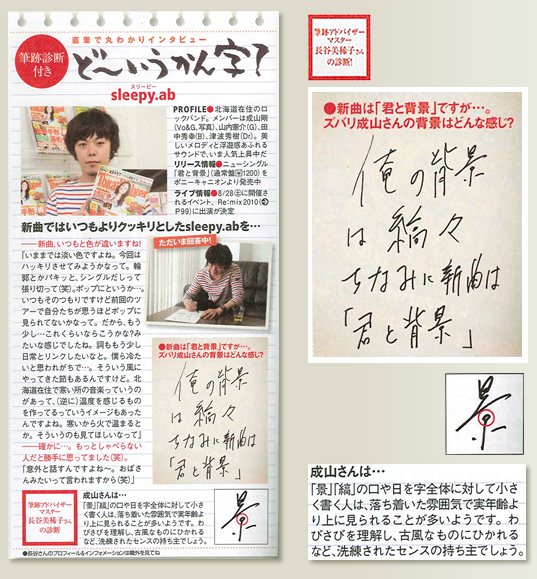 直筆で丸わかりインタビュー
筆跡診断
付き
ど〜いうかん字?
スリーピー
sleepy.ab
PROFILE●北海道在住のロ
ックバンド。メンバーは成山剛
(Vo&G、写真)、山内憲介(G)、田
中秀幸(B)、津波秀樹(Dr)。美
しいメロディと浮遊感あふれ
るサウンドで、いま人気上昇中だ
リリース情報●ニューシングル
「君と背景」(通常盤¥1200)を
ポニーキャニオンより発売中
ライブ情報●8/28㊏に開催さ
れるイベント、Re:mix2010(
P99)に出演が決定
新曲ではいつもよりクッキリとしたsleepy.abを…
――新曲、いつもと色が違いますね!
「いままでは淡い色ですよね。今回は
ハッキリさせてみようかなって。輪
郭とかパキッと、シングルだしって
張り切って(笑)。ポップにというか…。
いつもそのつもりですけど前回のツ
アーで自分たちが思うほどポップに
見られてないかなって。だから、もう
少し…これくらいならこうかな?み
たいな感じでしたね。詞ももう少し
日常とリンクしたいなと。僕ら冷た
いと思われがちで…。そういう風に
やってきた節もあるんですけど。北
海道在住で寒い所の音楽っていうの
があって、(逆に)温度を感じるもの
を作ってるっていうイメージもあった
んですよね。寒いから火で温まると
か。そういうのも見てほしいなって」
――確かに…。もっとしゃべらない
人だと勝手に思ってました(笑)。
「意外と話すんですよね〜。おばさ
んみたいって言われますから(笑)」
ただいま回答中!
●新曲は「君と背景」ですが…。
ズバリ成山さんの背景はどんな感じ?
俺の背景
は 縞々
ちなみに新曲は
「君と背景」
筆跡アドバイザー
マスター
長谷美稀子さん
の診断!
成山さんは…
「景」「縞」の口や日を字全体に対して小さ
く書く人は、落ち着いた雰囲気で実年齢
より上に見られることが多いようです。わ
びさびを理解し、古風なものにひかれる
など、洗練されたセンスの持ち主でしょう。
景
●長谷さんのプロフィール&インフォメーションは欄外を見てね
筆跡アドバイザー
マスター
長谷美稀子さん
の診断!
●新曲は「君と背景」ですが…。
ズバリ成山さんの背景はどんな感じ?
俺の背景
は 縞々
ちなみに新曲は
「君と背景」
景
成山さんは…
「景」「縞」の口や日を字全体に対して小さ
く書く人は、落ち着いた雰囲気で実年齢
より上に見られることが多いようです。わ
びさびを理解し、古風なものにひかれる
など、洗練されたセンスの持ち主でしょう。